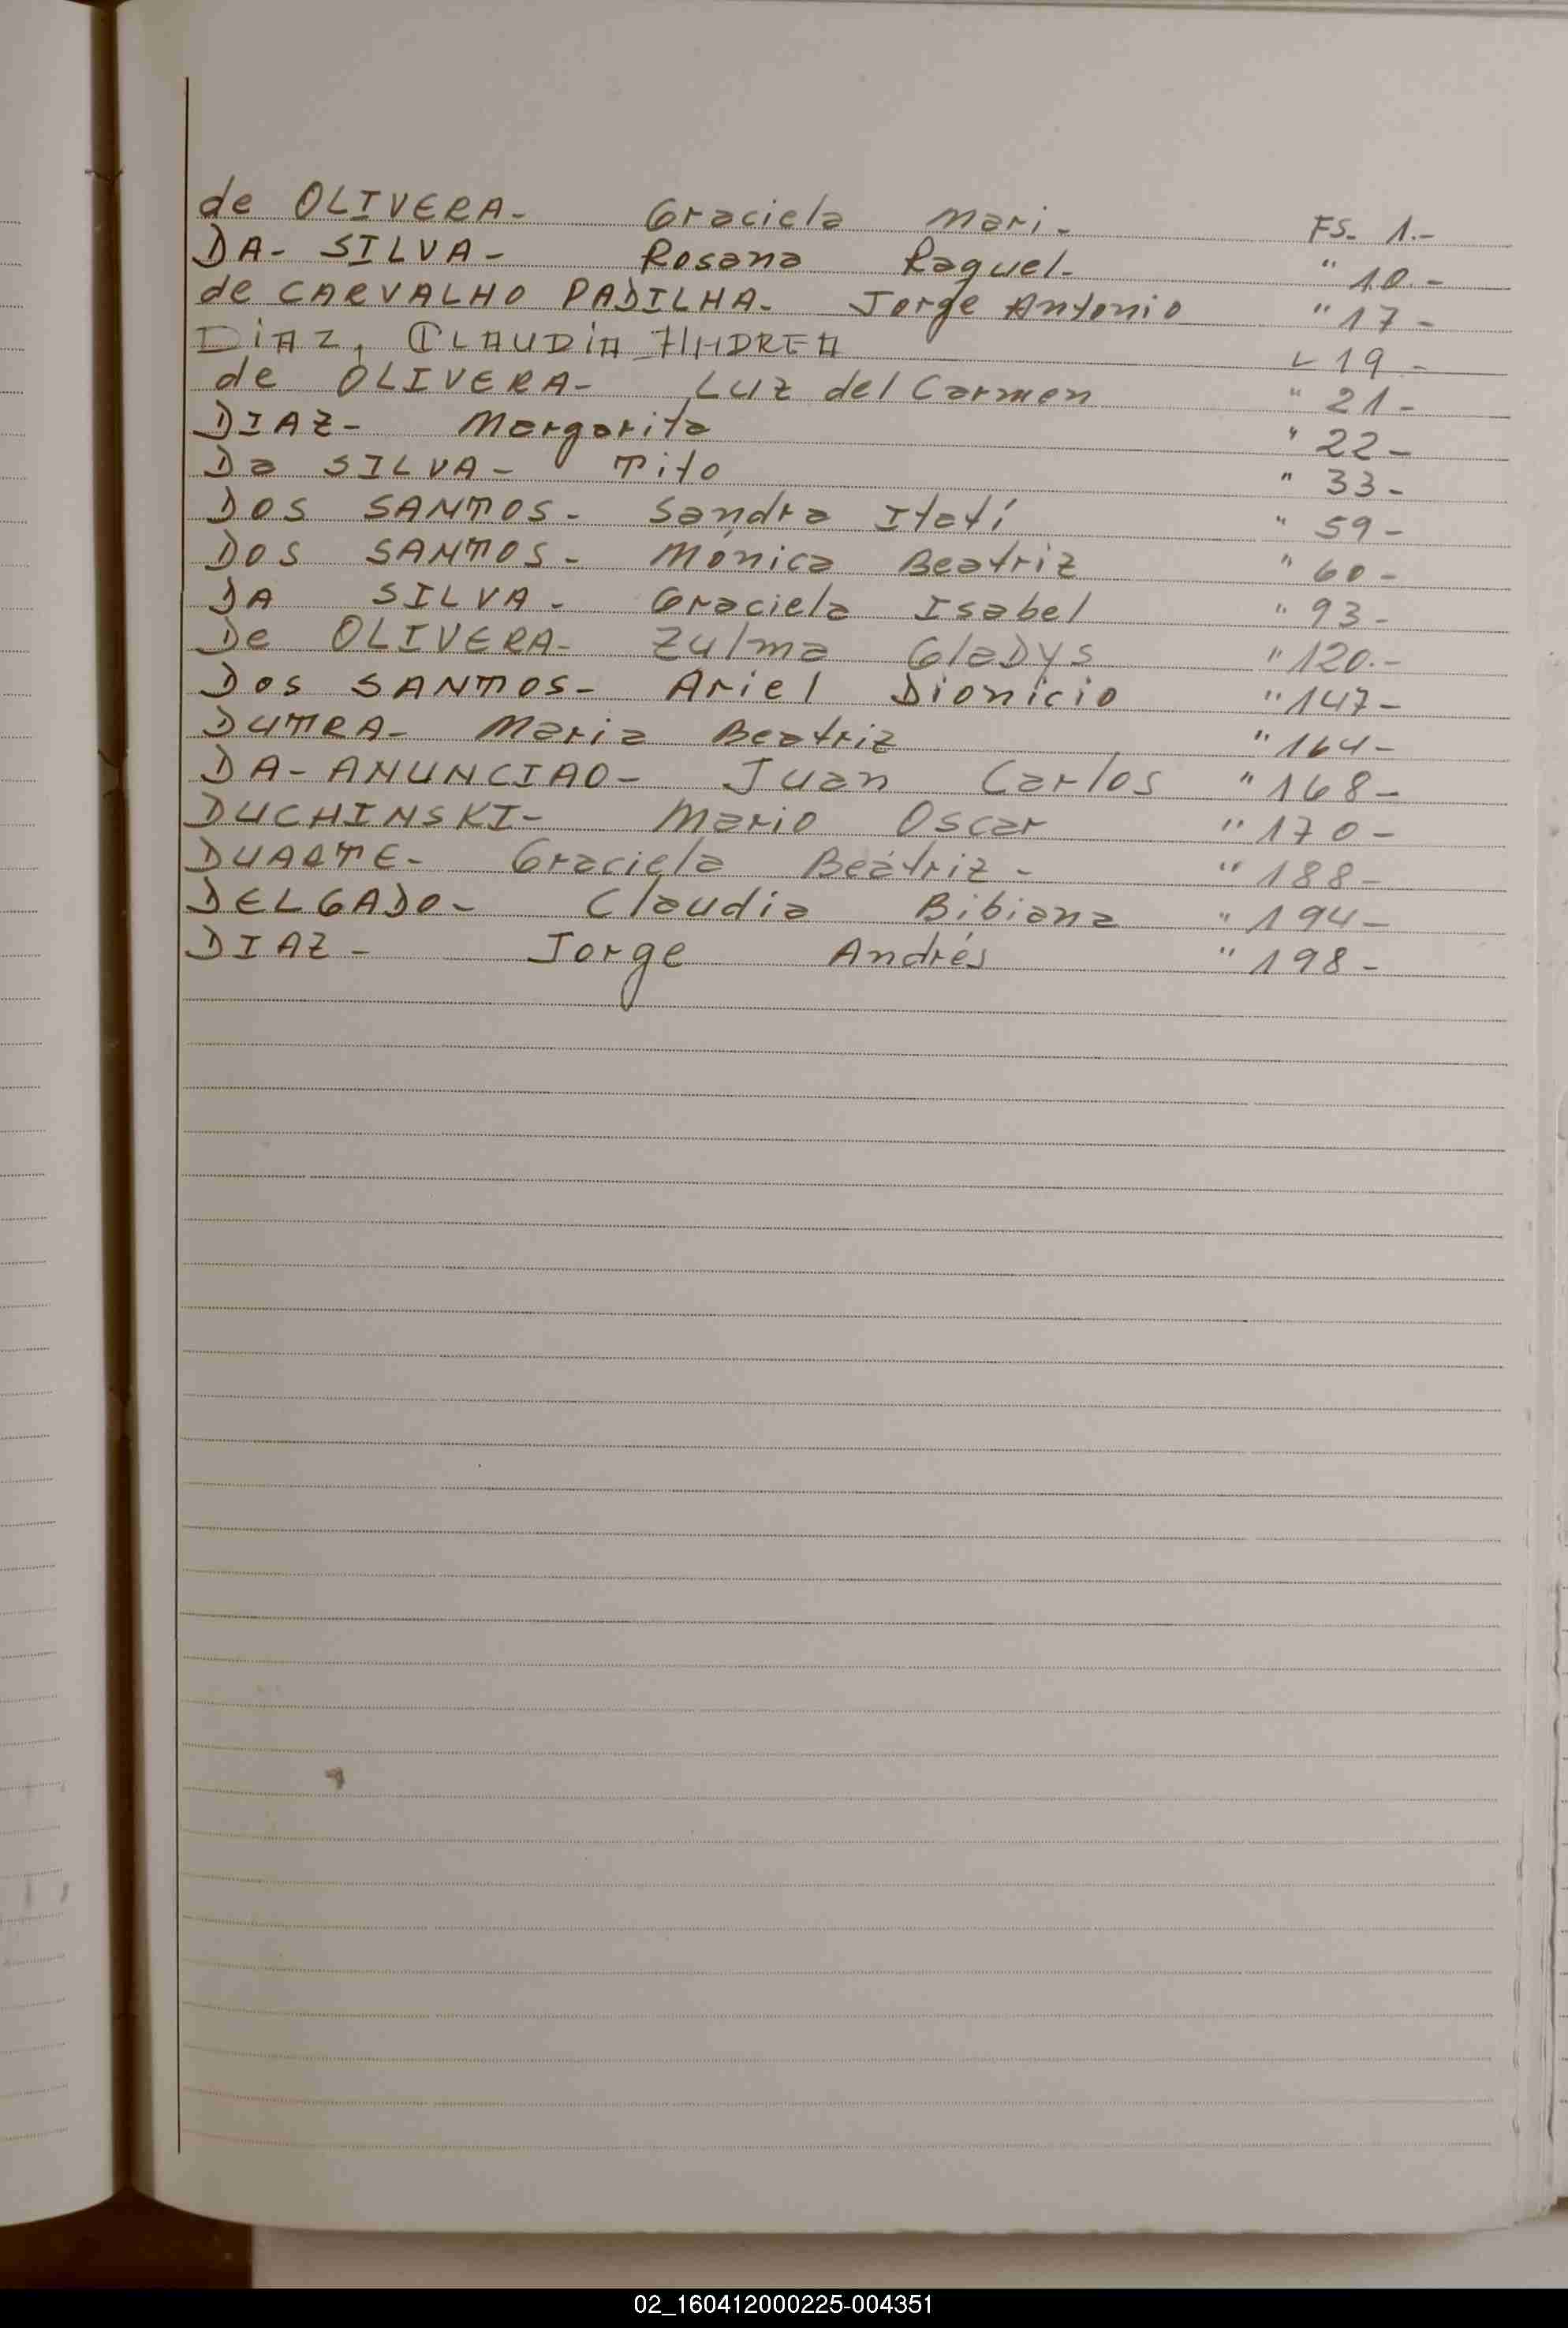 de OLIVERA- Graciela Mari- FS- 1.-
DA- SILVA- Rosana Raquel- " 10.-
de CARVALHO PADILHA- Jorge Antonio " 17-
DiAZ, CLAUDiA ANDREA " 19-
de OLIVERA- Luz del Carmen " 21-
DIAZ- Margarita " 22-
Da SILVA- Tito " 33-
DOS SANTOS- Sandra Itatí " 59-
DOS SANTOS- Mónica Beatriz " 60-
DA SILVA- Graciela Isabel " 93-
De OLIVERA- Zulma GlaDys " 120.-
Dos SANTOS- Ariel Dionicio " 147-
DUTRA- Maria Beatriz " 164-
DA- ANUNCIAO- Juan Carlos " 168-
DUCHINSKI- Mario Oscar " 170-
DUARTE- Graciela Beátriz- " 188-
DELGADO- Claudia Bibiana " 194-
DIAZ- Jorge Andrés " 198-
02_160412000225-004351